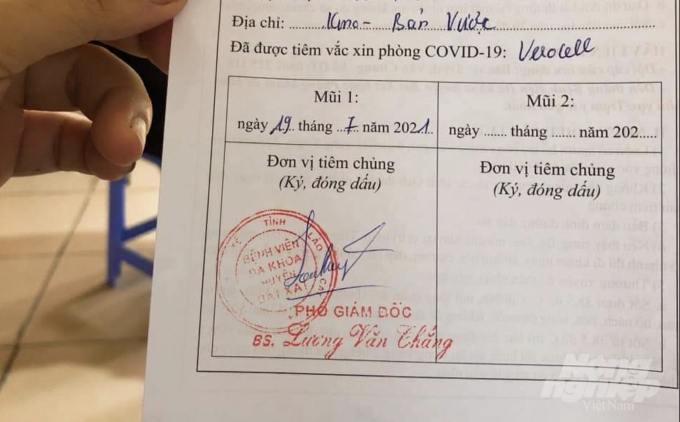 Địa chỉ: Kim3 - Bản Vược
Đã được tiêm vắc xin phòng COVID-19: Verocell
Mũi 1:
Mũi 2:
ngày 19 tháng 7 năm 2021
ngày ...... tháng ...... năm 202......
Đơn vị tiêm chủng
(Ký, đóng dấu)
Đơn vị tiêm chủng
(Ký, đóng dấu)
TỈNH LÀO CAI
BỆNH VIỆN
ĐA KHOA
HUYỆN
BÁT XÁT
PHÓ GIÁM ĐỐC
BS. Lương Văn Thắng
Nông nghiệp
Việt Nam